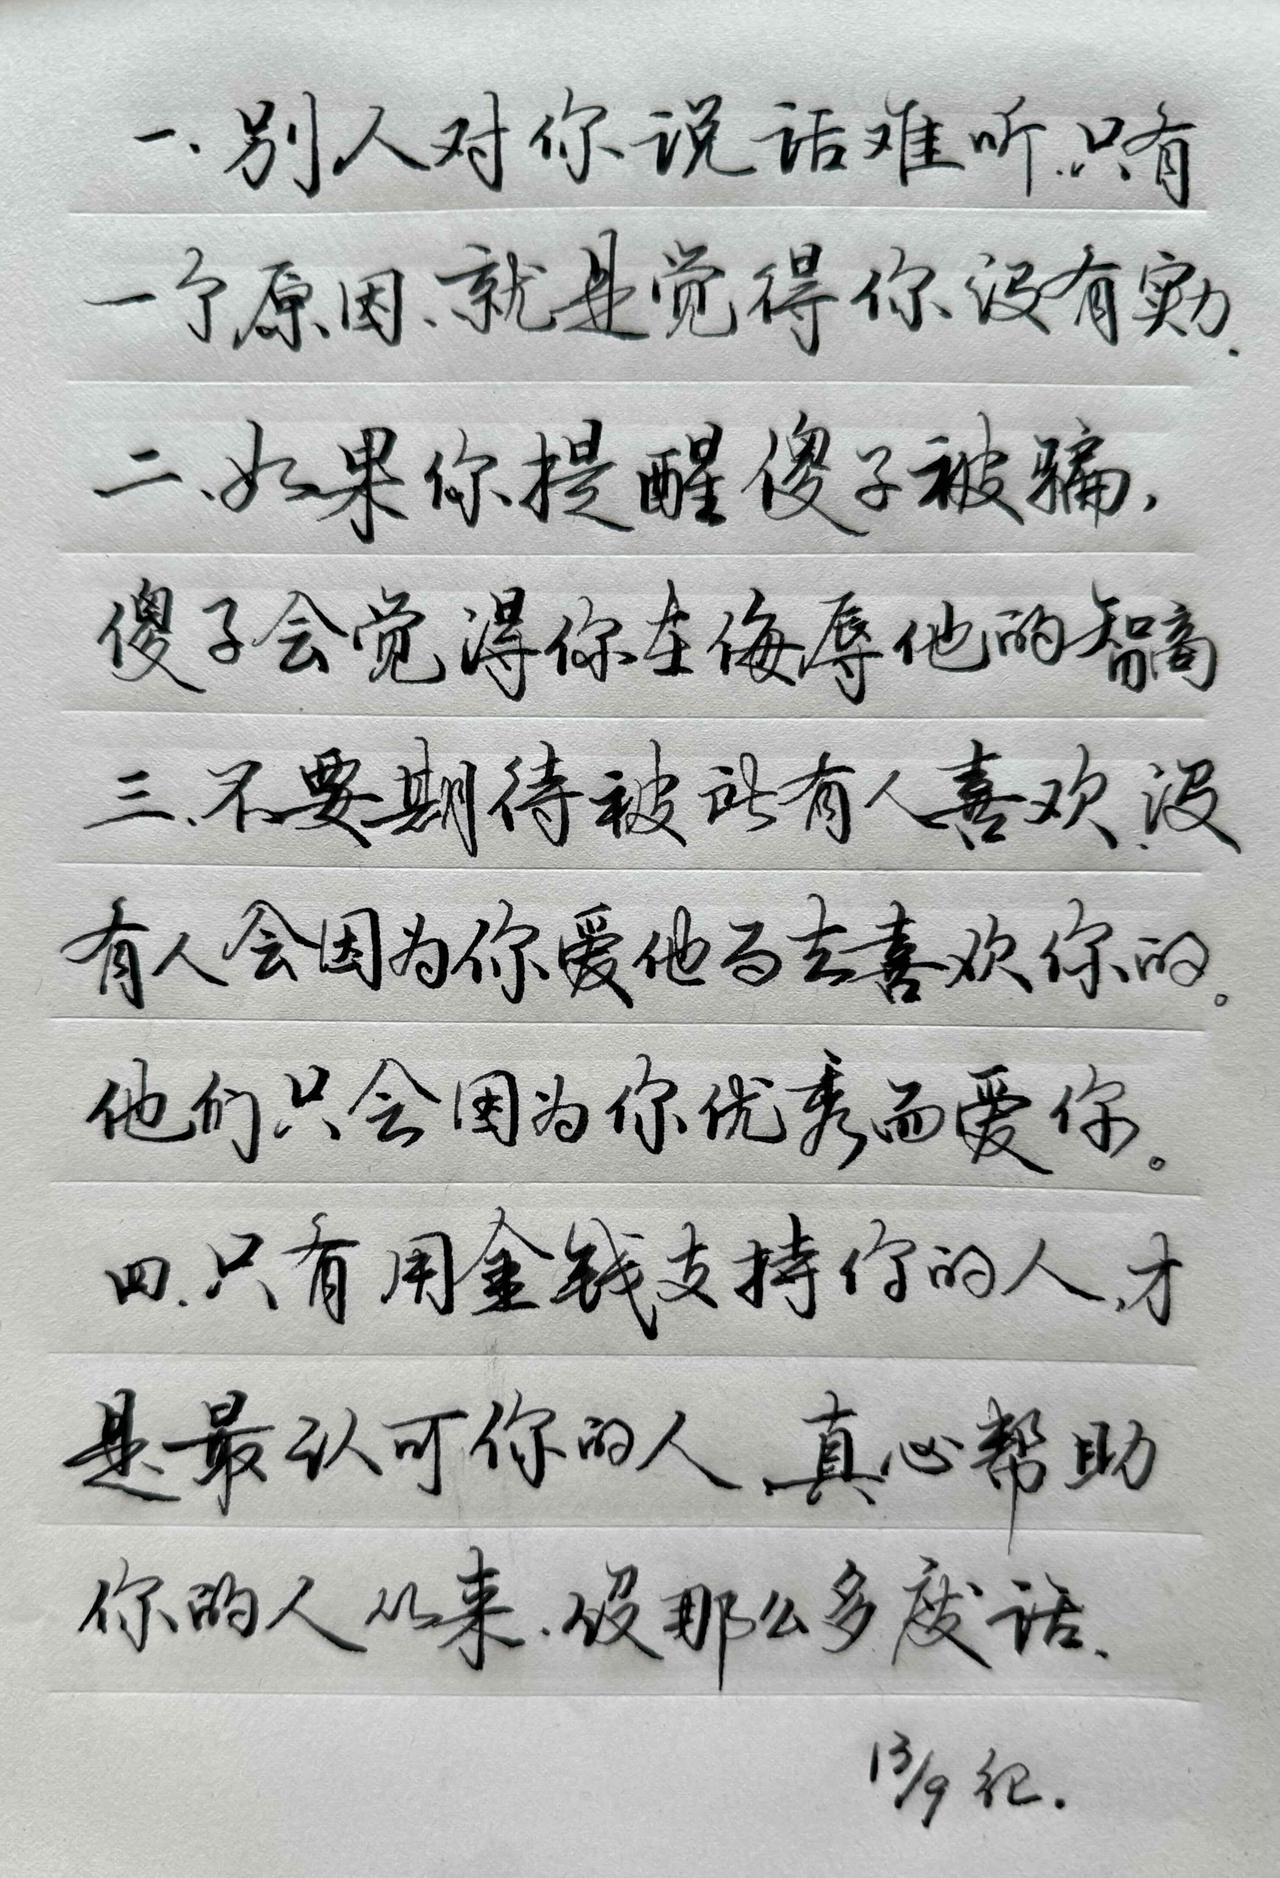 一、别人对你说话难听、只有
一个原因、就是觉得你没有实力.
二、如果你提醒傻子被骗,
傻子会觉得你在侮辱他的智商
三、不要期待被所有人喜欢、没
有人会因为你爱他而去喜欢你的。
他们只会因为你优秀而爱你。
四、只有用金钱支持你的人、才
是最认可你的人、真心帮助
你的人从来、没那么多废话、
13/9 纪.